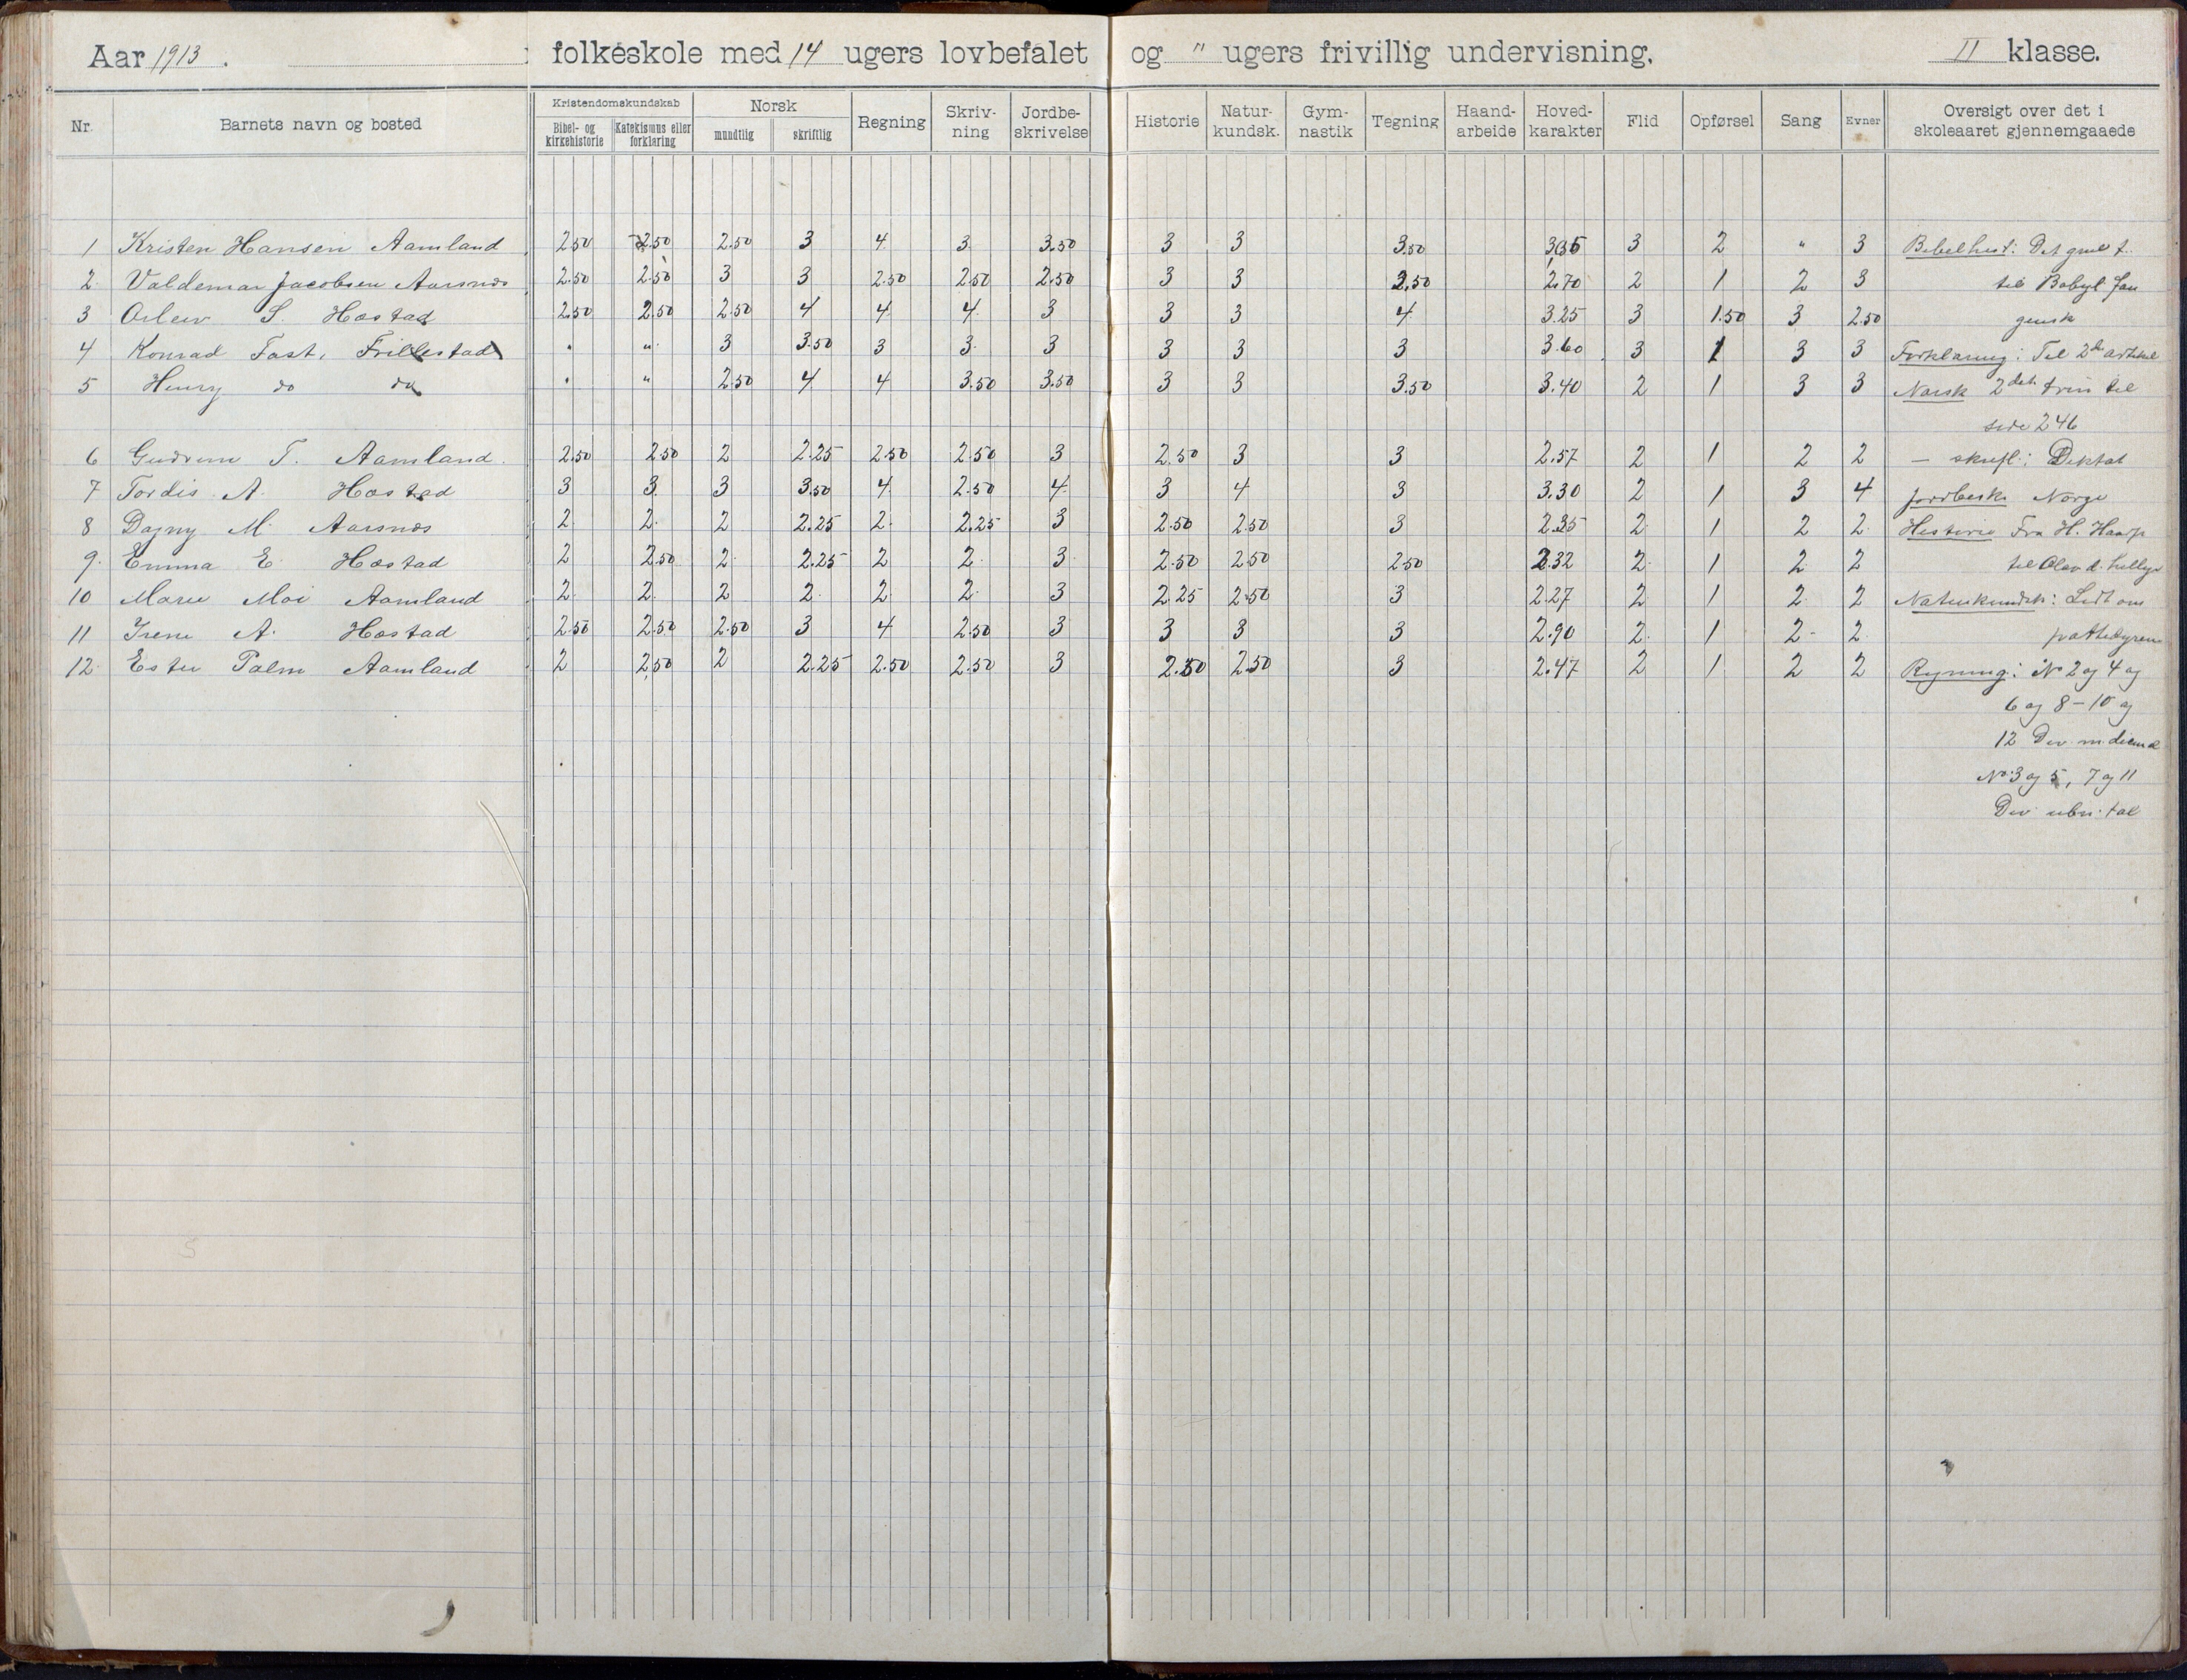 Aar 1913. folkeskole med 14 ugers lovbefalet og " ugers frivillig undervisning. II klasse.
Nr. Barnets navn og bosted Kristendomskundskab Bibel- og kirkehistorie Katekismus eller forklaring Norsk mundtlig skriftlig Regning Skriv-ning Jordbe-skrivelse Historie Natur-kundsk. Gym-nastik Tegning Haand-arbeide Hoved-karakter Flid Opførsel Sang Evner Oversigt over det i skoleaaret gjennemgaaede
1 Kristen Hansen Aamland 2.50 2.50 2.50 3 4 3 3.50 3 3 3.50 3 2 " 3 Bibelhist: Det gmle t.
2 Valdemar Jacobsen Aarsnes 2.50 2.50 3 3 2.50 2.50 2.50 3 3 2.50 2.70 2 1 2 3 til Babyl. fan
3 S. Hæstad 2.50 2.50 2.50 4 4 4 3 3 3 4 3.25 3 1.50 3 2.50 gensk
4 Konrad Tast, Frillestad " " 3 3.50 3 3 3 3 3 3 3.60 3 1 3 3 Forklaring: Til 2den artikel
5 Henry do do " " 2.50 4 4 3.50 3.50 3 3 3.50 3.40 2 1 3 3 Norsk 2det trin til
side 246
6 Gudrun T. Aamland. 2.50 2.50 2 2.25 2.50 2.50 3 2.50 3 3 2.57 2 1 2 2 — skriftl: Diktat
7 Tordis A. Hæstad 3 3 3 3.50 4 2.50 4 3 4 3 3.30 2 1 3 4 Jordbeskr Norge
8 Dagny M. Aarsnes 2 2 2 2.25 2 2.25 3 2.50 2.50 3 2.35 2 1 2 2 Historie Fra H. Haarf
9. Emma E. Hæstad 2 2.50 2 2.25 2 2 3 2.50 2.50 2.50 2.32 2 1 2 2 til Olav d. hellige
10 Marie Moi Aamland 2 2 2 2 2 2 3 2.25 2.50 3 2.27 2 1 2 2 Naturkundsk: Lidt om
11 Irene A. Hæstad 2.50 2.50 2.50 3 4 2.50 3 3 3 3 2.90 2 1 2 2 pattedyrene
12 Ester Palm Aamland 2 2.50 2 2.25 2.50 2.50 3 2.50 2.50 3 2.47 2 1 2 2 Regning: No 2 og 4 og
6 og 8-10 og
12 Div. m.
No 3 og 5, 7 og 11
Div. tal